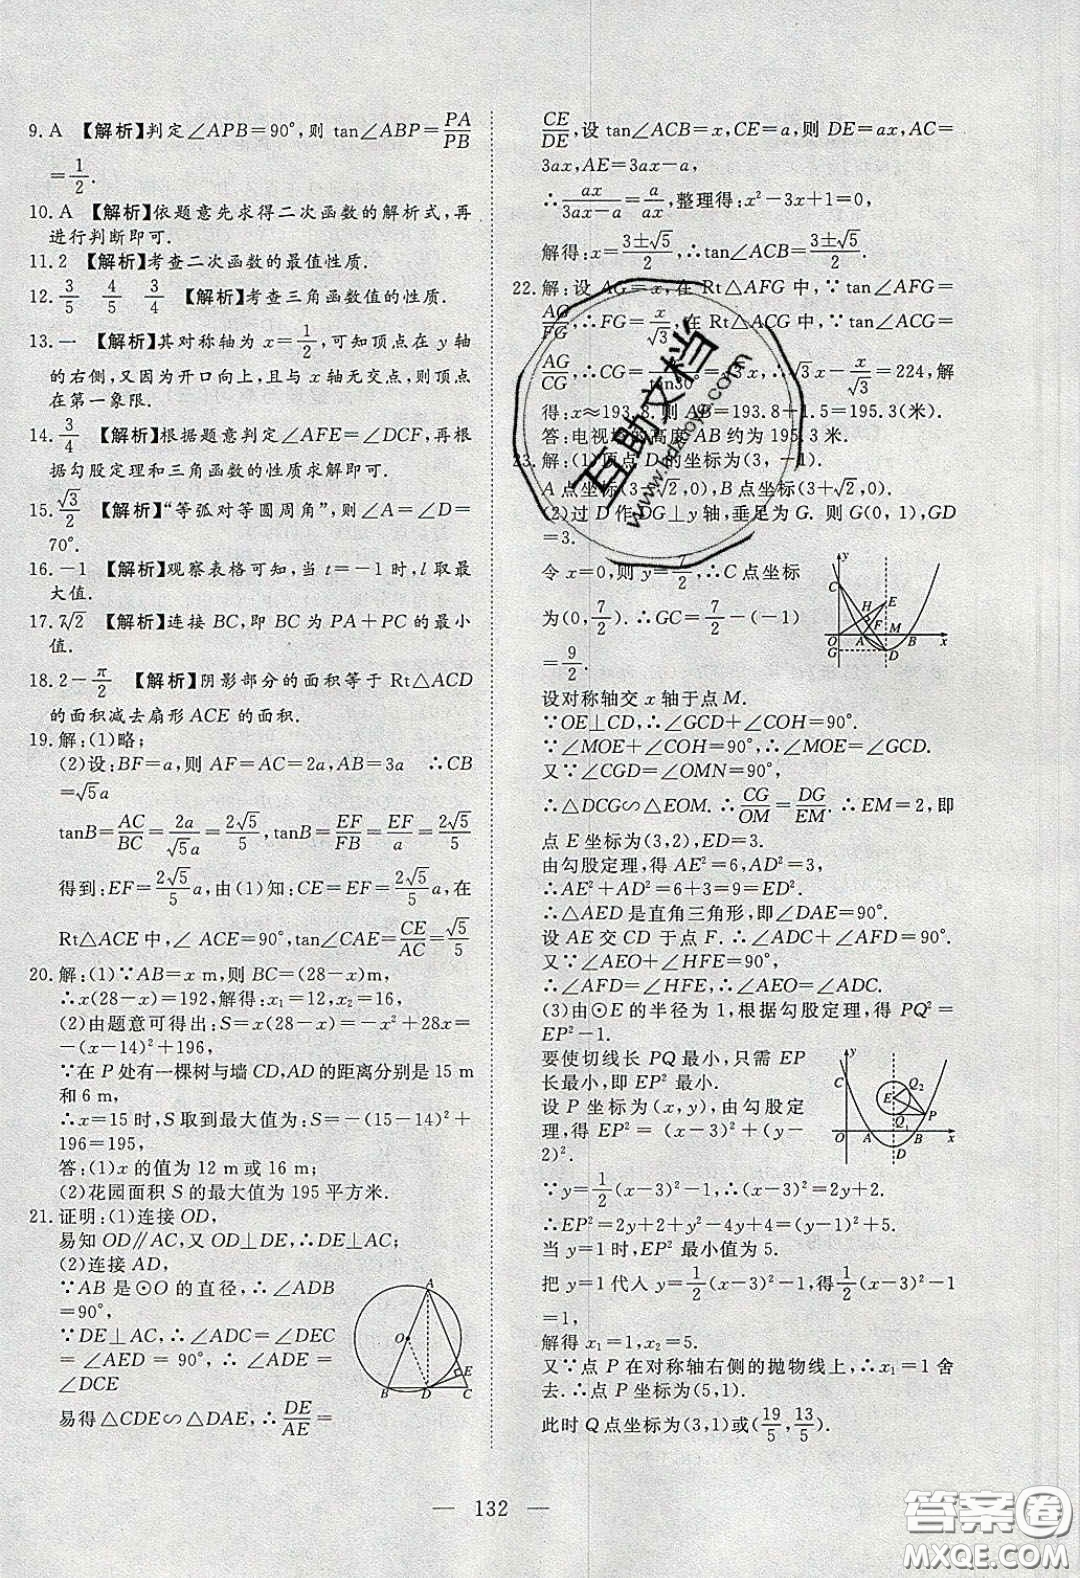 9. A 【解析】判定∠APB=90°,则 tan∠ABP=PA/PB
=1/2.
10. A 【解析】依题意先求得二次函数的解析式,再
进行判断即可.
11. 2 【解析】考查二次函数的最值性质.
12. 3/5 4/5 3/4 【解析】考查三角函数值的性质.
13. 一 【解析】其对称轴为 x=1/2,可知顶点在 y 轴
的右侧,又因为开口向上,且与 x 轴无交点,则顶点
在第一象限.
14. 3/4 【解析】根据题意判定∠AFE=∠DCF,再根
据勾股定理和三角函数的性质求解即可.
15. √3/2 【解析】“等弧对等圆周角”,则∠A=∠D=
70°.
16. -1 【解析】观察表格可知,当 t=-1 时,l 取最
大值.
17. 7√2 【解析】连接 BC,即 BC 为 PA+PC 的最小
值.
18. 2-π/2 【解析】阴影部分的面积等于 Rt△ACD
的面积减去扇形 ACE 的面积.
19. 解:(1)略;
(2)设:BF=a,则 AF=AC=2a,AB=3a ∴CB
=√5a
tanB=AC/BC=2a/√5a=2√5/5,tanB=EF/FB=EF/a=2√5/5
得到:EF=2√5/5a,由(1)知:CE=EF=2√5/5a,在
Rt△ACE 中,∠ ACE=90°,tan∠CAE=CE/AC=√5/5
20. 解:(1)∵AB=x m,则 BC=(28-x)m,
∴x(28-x)=192,解得:x₁=12,x₂=16,
(2)由题意可得出:S=x(28-x)=-x²+28x=
-(x-14)²+196,
∵在 P 处有一棵树与墙 CD,AD 的距离分别是 15 m
和 6 m,
∴x=15 时,S 取到最大值为:S=-(15-14)²+
196=195,
答:(1)x 的值为 12 m 或 16 m;
(2)花园面积 S 的最大值为 195 平方米.
21. 证明:(1)连接 OD,
易知 OD∥AC,又 OD⊥DE,∴DE⊥AC;
(2)连接 AD,
∵AB 是⊙O 的直径,∴∠ADB
=90°,
∵DE⊥AC,∴∠ADC=∠DEC
=∠AED = 90°,∴∠ADE =
∠DCE
易得△CDE∽△DAE,∴DE/AE=
A
O
E
B
D
C
CE/DE,设 tan∠ACB=x,CE=a,则 DE=ax,AC=
3ax,AE=3ax-a,
∴ax/(3ax-a)=a/ax,整理得:x²-3x+1=0,
解得:x=(3±√5)/2,∴tan∠ACB=(3±√5)/2.
22. 解:设 AG=x,在 Rt△AFG 中,∵tan∠AFG=
AG/FG,∴FG=x/√3,在 Rt△ACG 中,∵tan∠ACG=
AG/CG,∴CG=x/tan30°=√3x,∴√3x-x/√3=224,解
得:x≈193.8.则 AB=193.8+1.5=195.3(米).
答:电视塔的高度 AB 约为 195.3 米.
23. 解:(1)顶点 D 的坐标为(3,-1).
A 点坐标(3-√2,0),B 点坐标(3+√2,0).
(2)过 D 作 DG⊥y 轴,垂足为 G. 则 G(0, 1),GD
=3.
令 x=0,则 y=7/2,∴C 点坐标
为(0,7/2).∴GC=7/2-(-1)
=9/2.
y
C
H
E
F
M
O
A
B
x
G
D
设对称轴交 x 轴于点 M.
∵OE⊥CD,∴∠GCD+∠COH=90°.
∵∠MOE+∠COH=90°,∴∠MOE=∠GCD.
又∵∠CGD=∠OMN=90°,
∴△DCG∽△EOM. ∴CG/OM=DG/EM. ∴EM=2,即
点 E 坐标为(3,2),ED=3.
由勾股定理,得 AE²=6,AD²=3,
∴AE²+AD²=6+3=9=ED².
∴△AED 是直角三角形,即∠DAE=90°.
设 AE 交 CD 于点 F. ∴∠ADC+∠AFD=90°.
又∵∠AEO+∠HFE=90°,
∴∠AFD=∠HFE,∴∠AEO=∠ADC.
(3)由⊙E 的半径为 1,根据勾股定理,得 PQ²=
EP²-1.
要使切线长 PQ 最小,只需 EP
长最小,即 EP² 最小.
设 P 坐标为(x,y),由勾股定
理,得 EP² =(x-3)²+(y-
2)².
y
C
E
Q₂
P
Q₁
O
A
B
x
D
∵y=1/2(x-3)²-1,∴(x-3)²=2y+2.
∴EP²=2y+2+y²-4y+4=(y-1)²+5.
当 y=1 时,EP² 最小值为 5.
把 y=1 代人 y=1/2(x-3)²-1,得1/2(x-3)²-1
=1,
解得 x₁=1,x₂=5.
又∵点 P 在对称轴右侧的抛物线上,∴x₁=1 舍
去.∴点 P 坐标为(5,1).
此时 Q 点坐标为(3,1)或(19/5,13/5).
— 132 —
互助文档
www.hdzuoye.com
答案圈
MXQE.COM